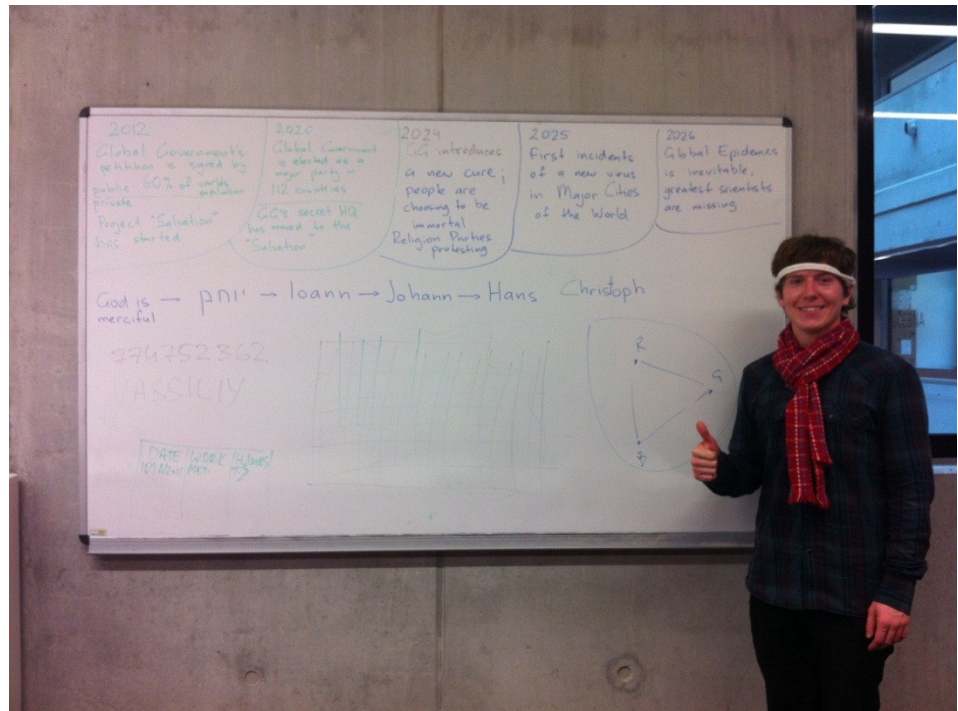 2012
Global Government's
petition is signed by
public 60% of
private
Project "Salvation"
has started
2020
Global Government
is elected as a
major party in
112 countries
GG's secret HQ
has moved to the
"Salvation"
2024
GG introduces
a new cure,
people are
choosing to be
immortal
Religion Parties
protesting
2025
First incidents
of a new virus
in Major Cities
of the World
2026
Global Epidemics
is inevitable,
greatest scientists
are missing
God is → → Ioann → Johann → Hans Christoph
merciful
274752362
VASSILIY
R
G
B
DATE WORK